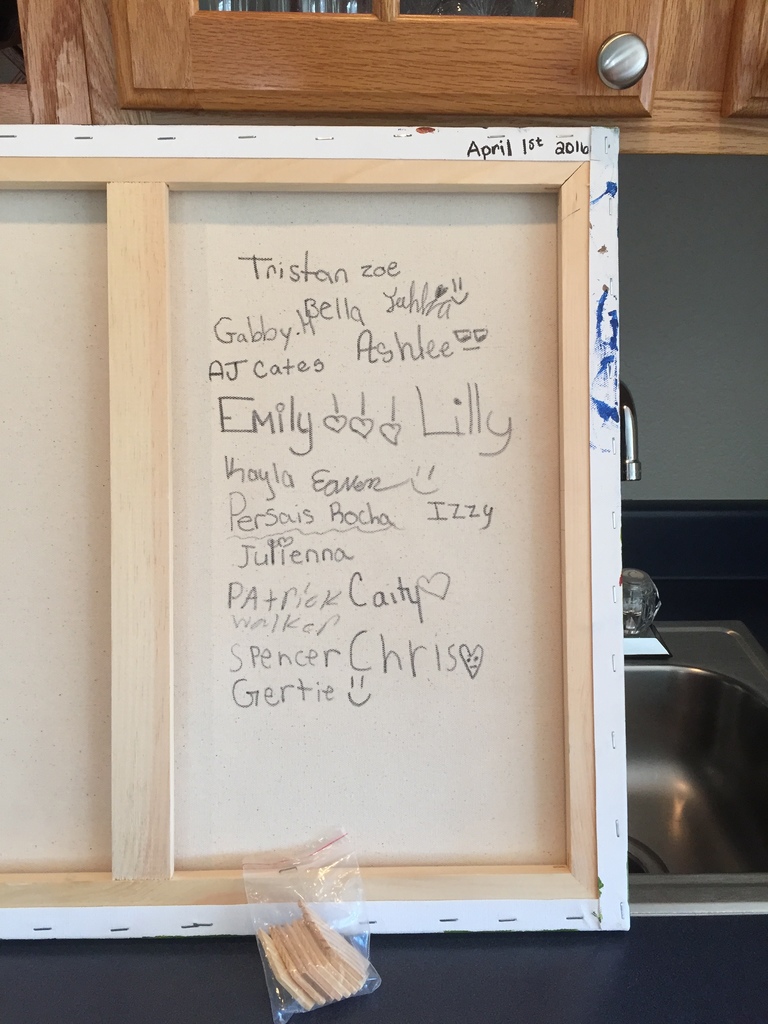 April 1st 2016
Tristan zoe
Bella
Gabby.H Ashlee
AJ Cates
Emily Lilly
Kayla
Persais Rocha Izzy
Julienna
PAtrick Caity
walker
Spencer Chris
Gertie